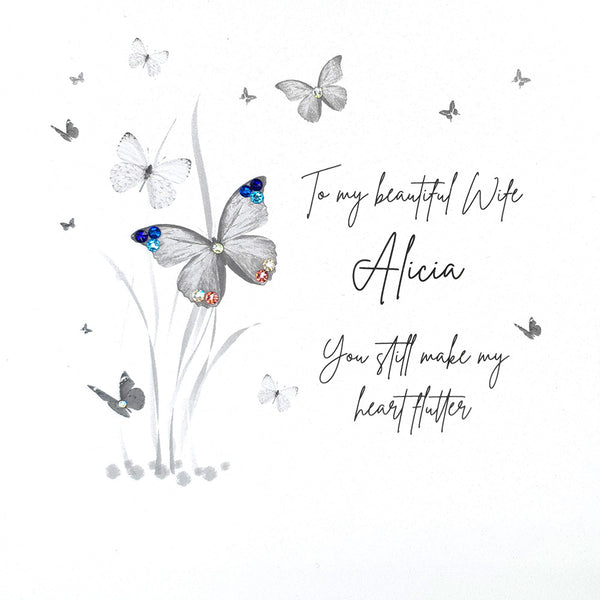 To my beautiful Wife
Alicia
You still make my
heart flutter